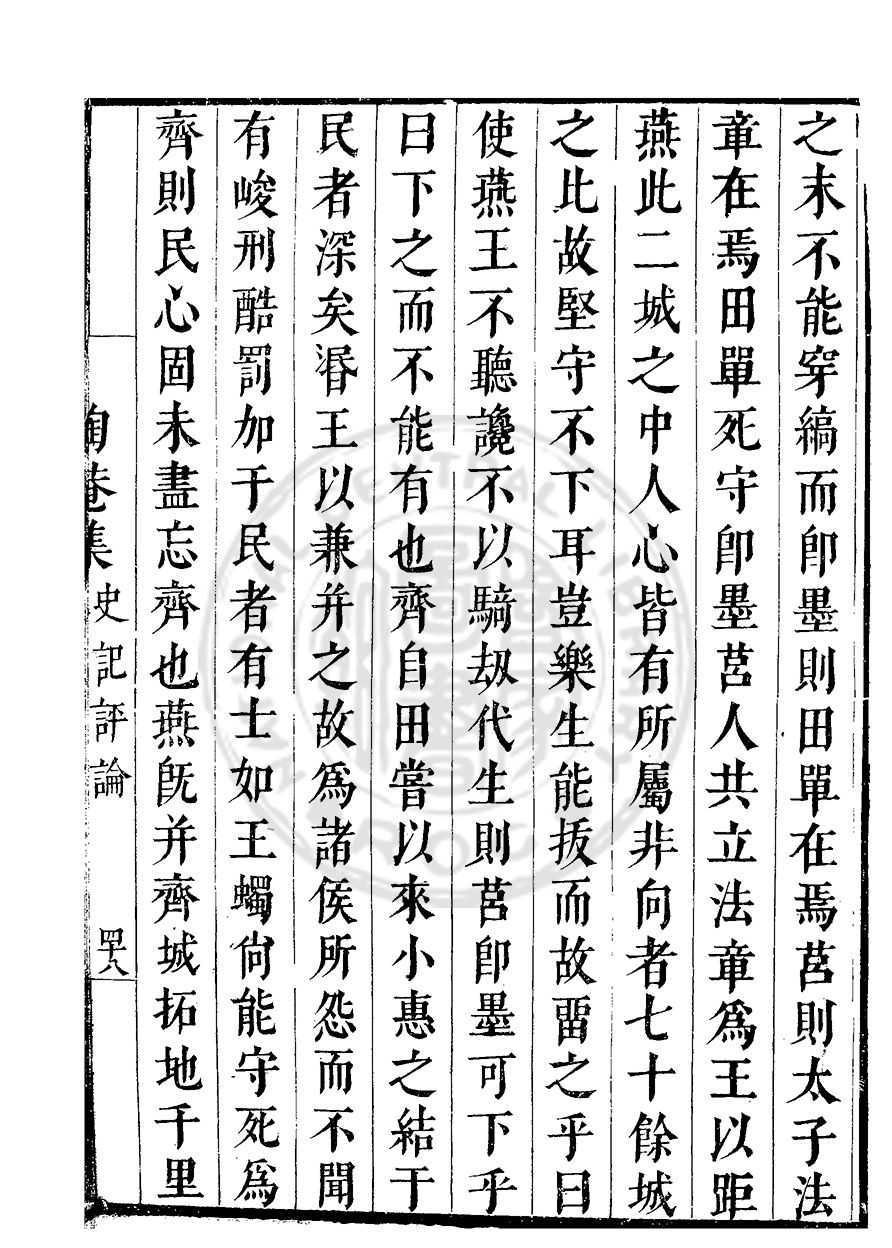 之末不能穿縞而卽墨則田單在焉莒則太子法
章在焉田單死守卽墨莒人共立法章爲王以距
燕此二城之中人心皆有所屬非向者七十餘城
之比故堅守不下耳豈樂生能拔而故畱之乎曰
使燕王不聽讒不以騎劫代生則莒卽墨可下乎
曰下之而不能有也齊自田嘗以來小惠之結于
民者深矣湣王以兼并之故爲諸侯所怨而不聞
有峻刑酷罰加于民者有士如王蠋尙能守死爲
齊則民心固未盡忘齊也燕旣并齊城拓地千里
陶菴集 史記評論 四八